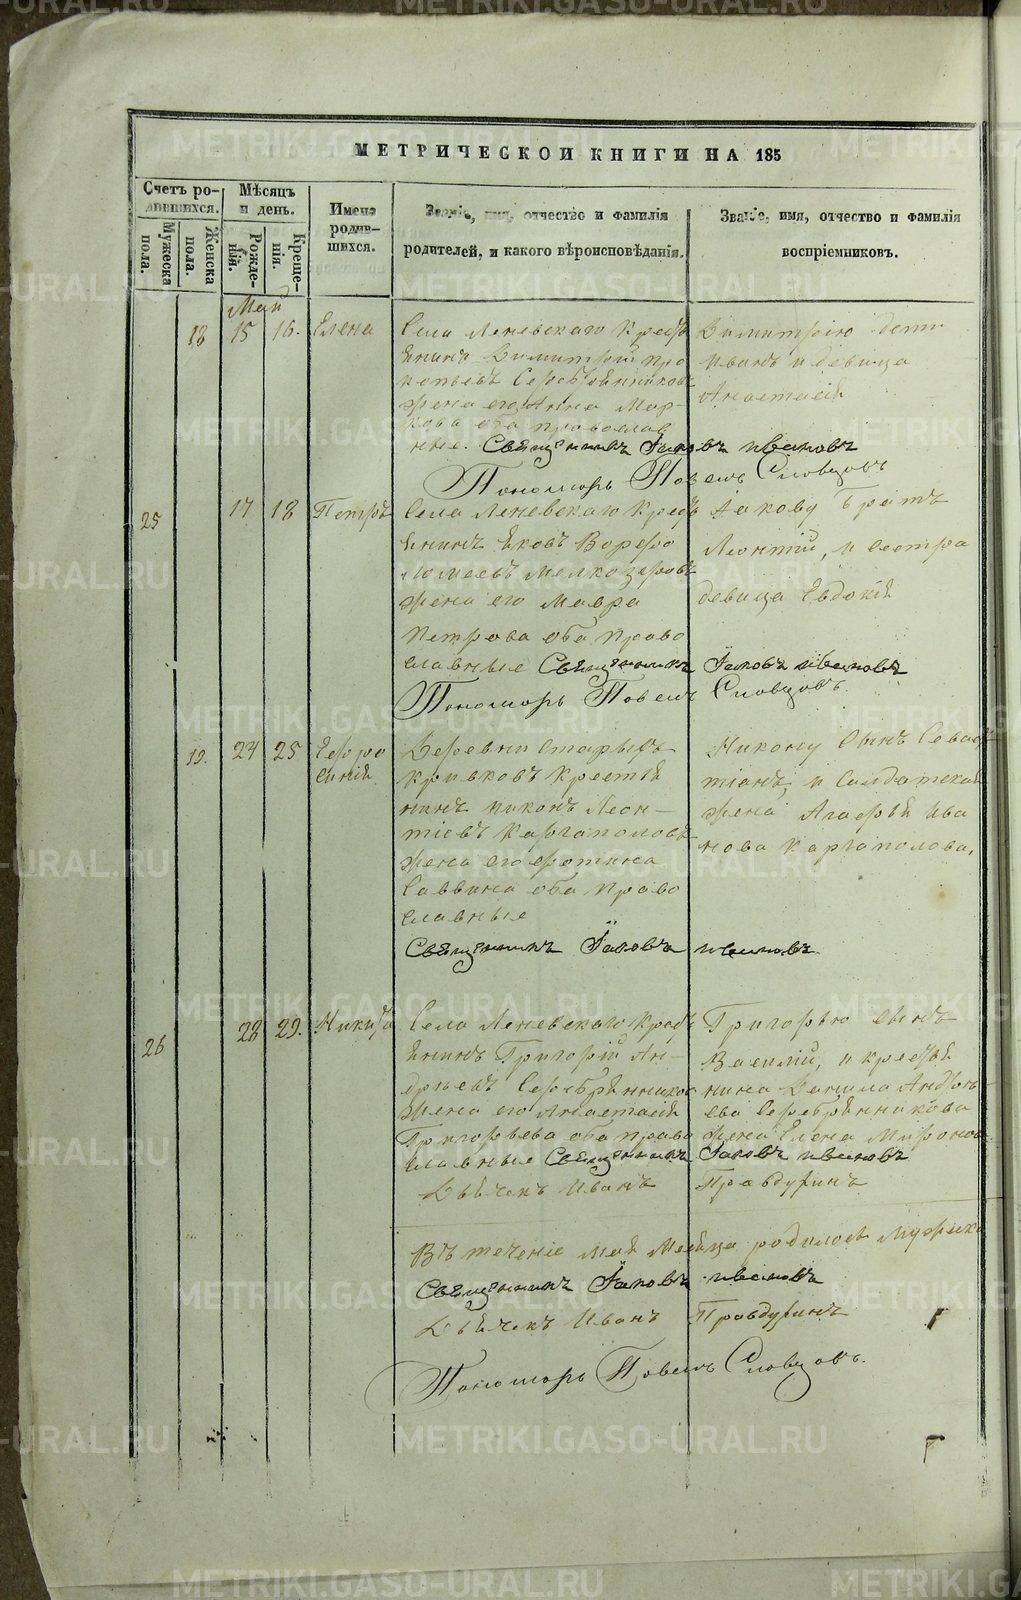 МЕТРИЧЕСКОЙ КНИГИ НА 185
Счетъ ро-
дившихся.
Мѣсяцъ
и день.
Имена
родив-
шихся.
Званіе, имя, отчество и фамилія
родителей, и какого вѣроисповѣданія.
Званіе, имя, отчество и фамилія
воспріемниковъ.
Мужеска
пола.
Женска
пола.
Рожде-
нія.
Креще-
нія.
Май
18 15 16. Елена
Села Леневскаго Кресть
янинъ Димитрій Про
копьевъ Серебрянниковъ
жена его Анна Мар-
кова оба православ
ные. Священникъ Іаковъ Ивановъ
Пономарь Павелъ Словцовъ
Димитрію дети
Иванъ и девица
Анастасія
25 17 18 Петръ
Села Леневскаго Кресть
янинъ Яковъ Варфо
ломеевъ Мелкозеровъ
жена его Мавра
Петрова оба право
славные Священникъ Іаковъ Ивановъ
Пономарь Павелъ Словцовъ.
Іакову братъ
Леонтій, и сестра
девица Евдокія
19. 24 25 Ефро
синія
Деревни Старыхъ
Кривковъ Крестья
нинъ Никонъ Леон-
тіевъ Каргаполовъ
жена его Фотина
Саввина оба право
славные
Священникъ Іаковъ Ивановъ.
Никону сынъ Севас
тіанъ, и Солдатская
жена Агафья Ива
нова Каргаполова.
26 28 29. Никита
Села Леневскаго Кресть
янинъ Григорій Ан-
дреевъ Серебрянников
жена его Анастасія
Григорьева оба право
славные Священникъ Іаковъ Ивановъ
Дьячекъ Иванъ Правдухинъ
Григорью сынъ
Василій, и крестья
нина Данила Андре
ева Серебрянникова
жена Елена Миронов
Въ теченіе мая месяца родилось мужеска
Священникъ Іаковъ Ивановъ
Дьячекъ Иванъ Правдухинъ
Пономарь Павелъ Словцовъ.
METRIKI.GASO-URAL.RU